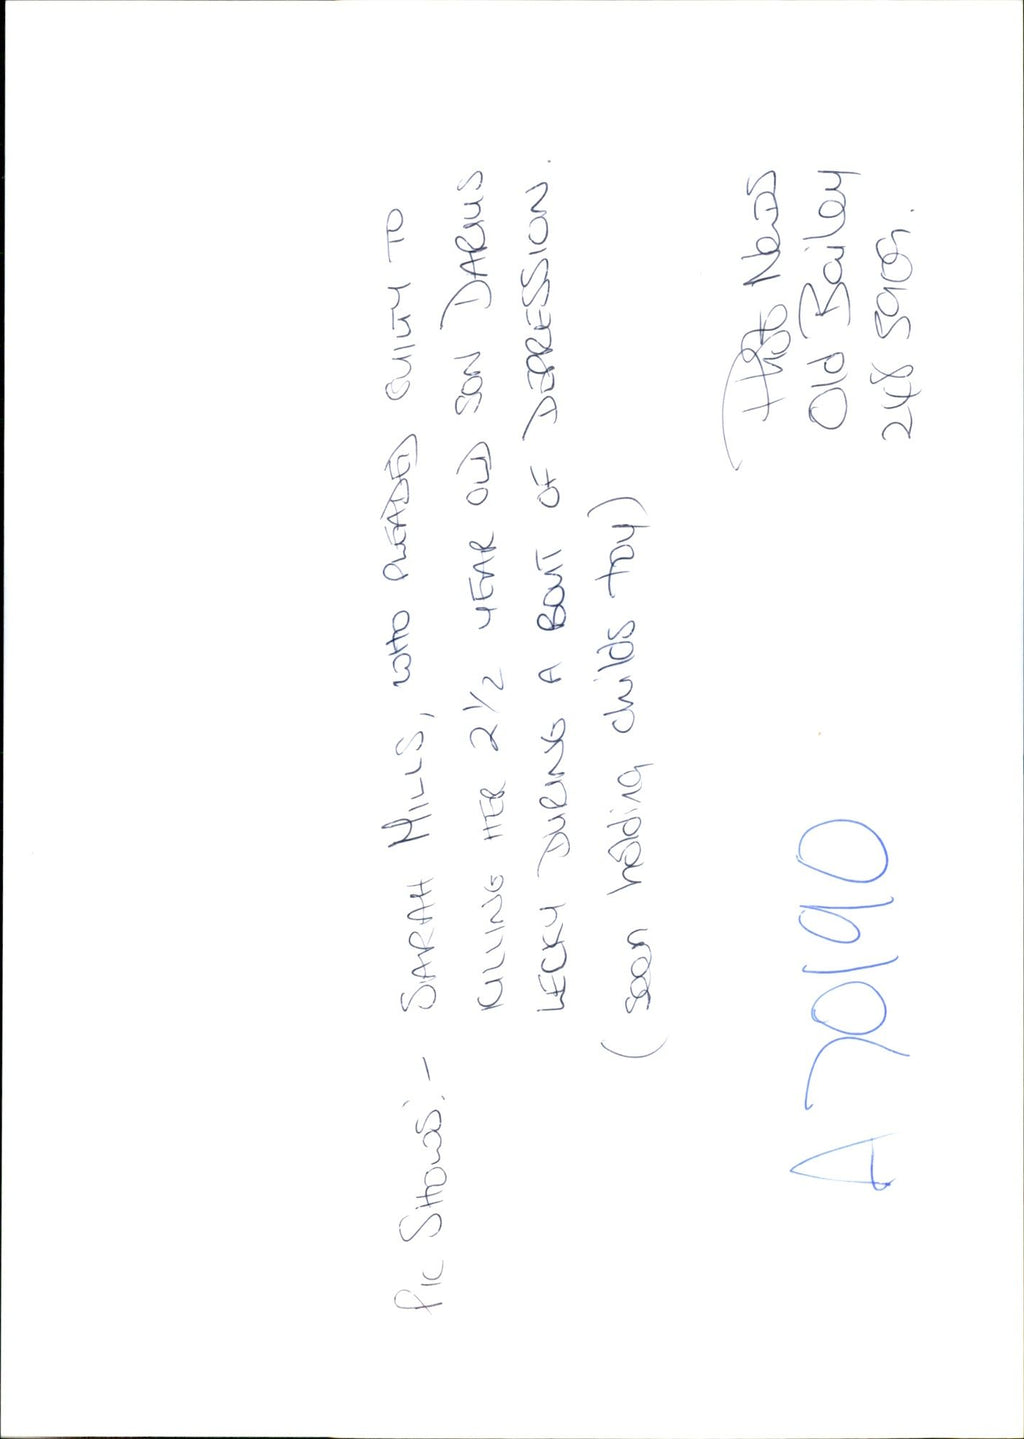 PIC SHOWS:- SARAH MILLS, WHO PLEADED GUILTY TO
KILLING HER 2 1/2 YEAR OLD SON DARIUS
LECKY DURING A BOUT OF DEPRESSION.
(seen holding childs toy)
News
Old Bailey
248 5909.
A70190